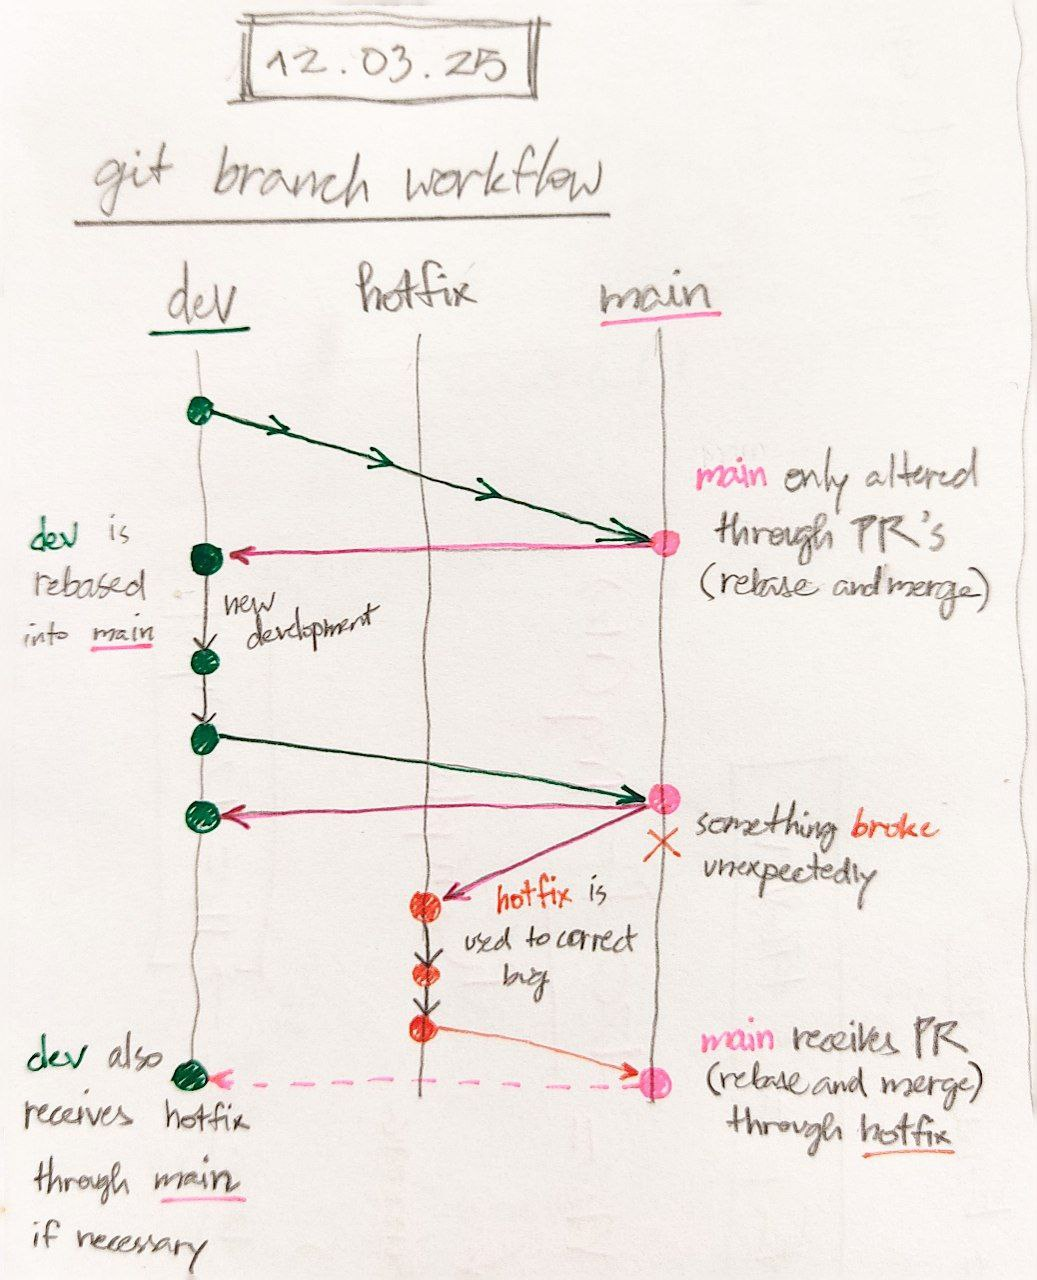 12.03.25
git branch workflow
dev
hotfix
main
main only altered
through PR's
(rebase and merge)
dev is
rebased
into main
new
development
something broke
unexpectedly
hotfix is
used to correct
bug
main receives PR
(rebase and merge)
through hotfix
dev also
receives hotfix
through main
if necessary